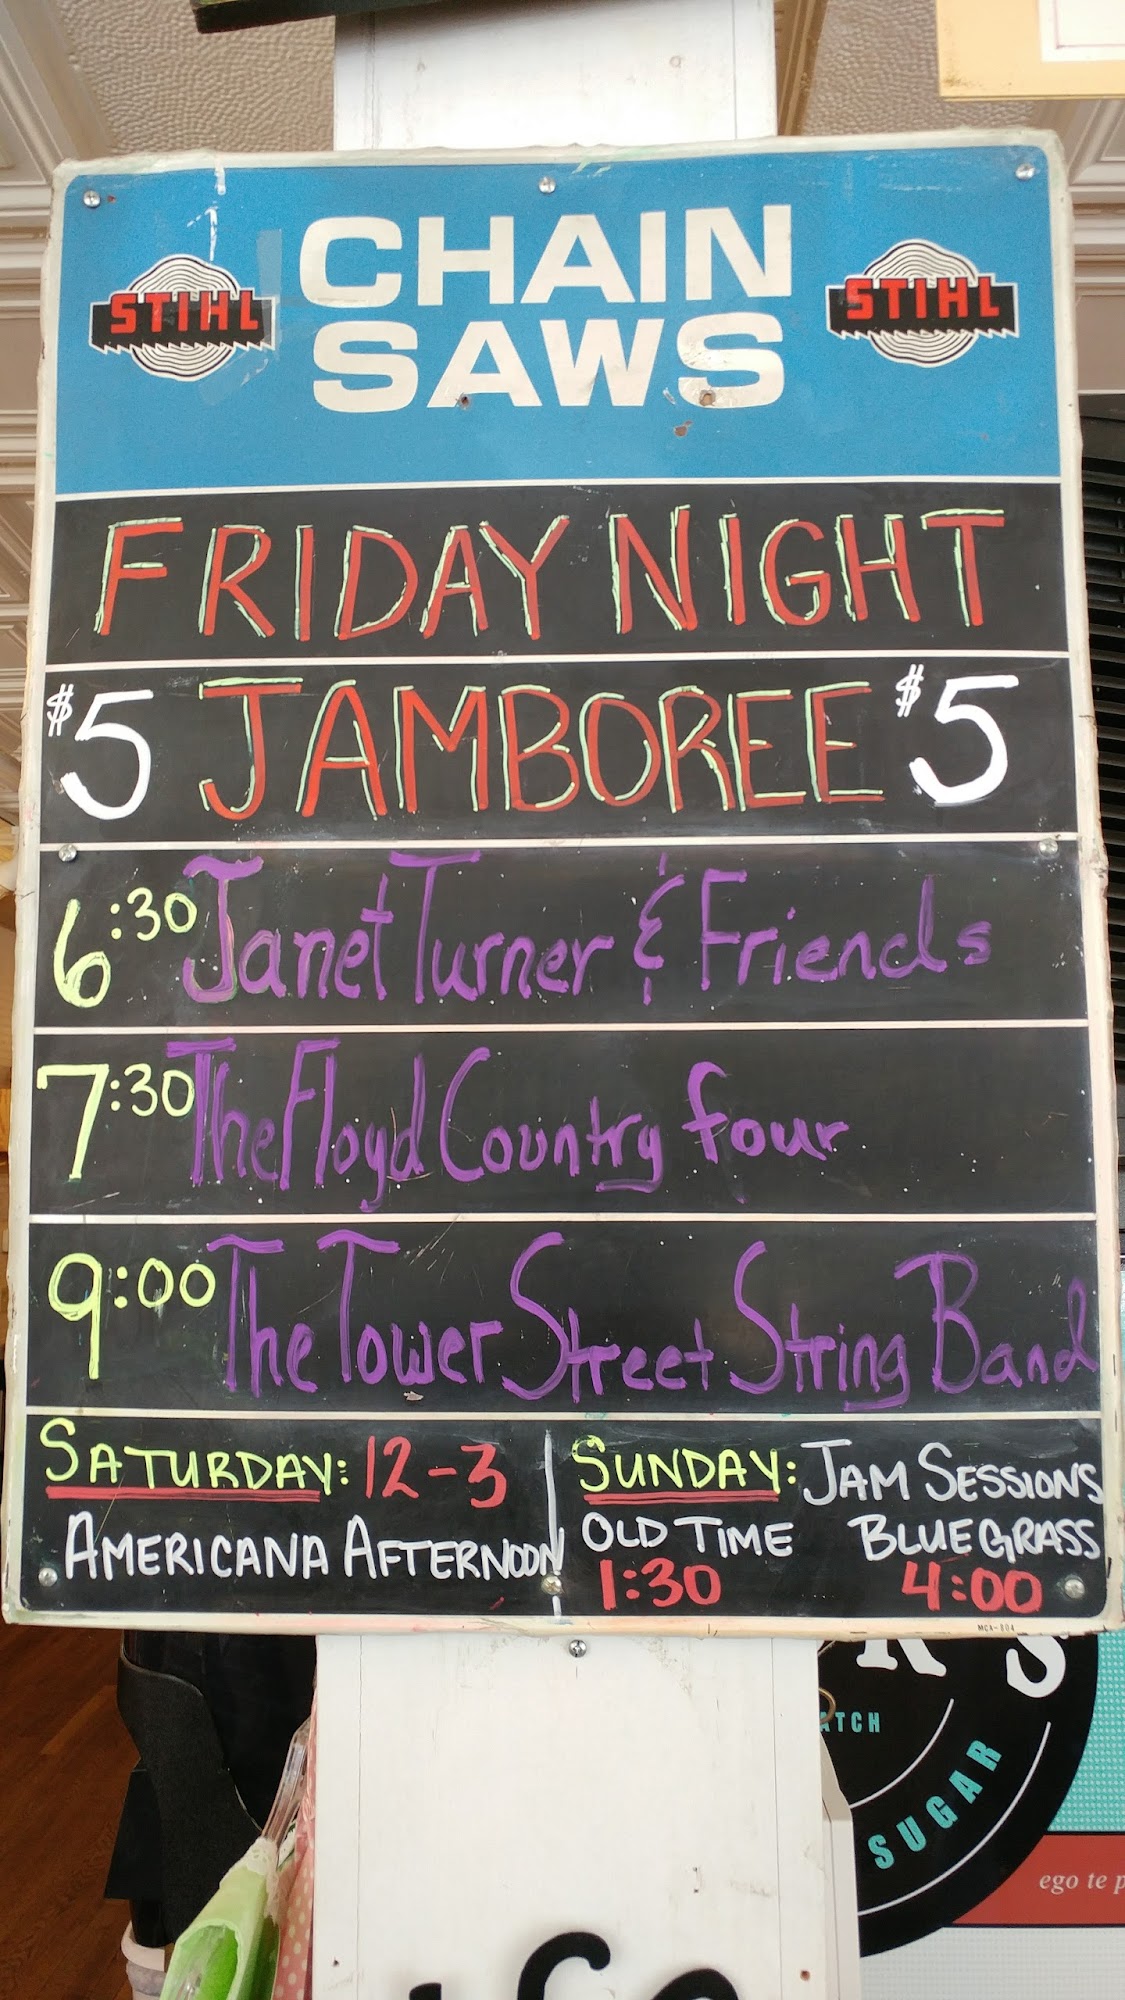 CHAIN
SAWS
STIHL
STIHL
FRIDAY NIGHT
$5 JAMBOREE $5
6:30 Janet Turner & Friends
7:30 The Floyd Country four
9:00 The Tower Street String Band
SATURDAY: 12-3
AMERICANA AFTERNOON
SUNDAY: JAM SESSIONS
OLD TIME BLUEGRASS
1:30 4:00
MCA-804
SUGAR
ego te